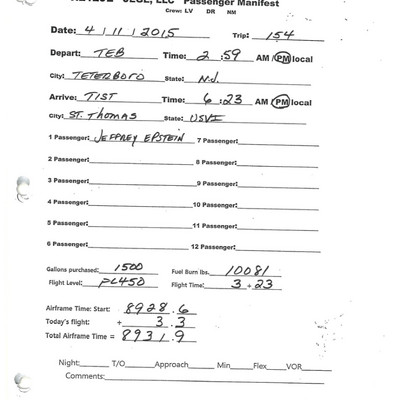 JEGE, LLC Passenger Manifest
Crew: LV DR NM
Date: 4 / 11 / 2015 Trip: 154
Depart: TEB Time: 2 : 59 AM PM local
City: TETERBORO State: N.J.
Arrive: TIST Time: 6 : 23 AM PM local
City: ST. THOMAS State: USVI
1 Passenger: JEFFREY EPSTEIN 7 Passenger:
2 Passenger: 8 Passenger:
3 Passenger: 9 Passenger:
4 Passenger: 10 Passenger:
5 Passenger: 11 Passenger:
6 Passenger: 12 Passenger:
Gallons purchased: 1500 Fuel Burn lbs. 10081
Flight Level: FL450 Flight Time: 3 + 23
Airframe Time: Start: 8928.6
Today's flight: + 3.3
Total Airframe Time = 8931.9
Night: T/O Approach Min Flex VOR
Comments: